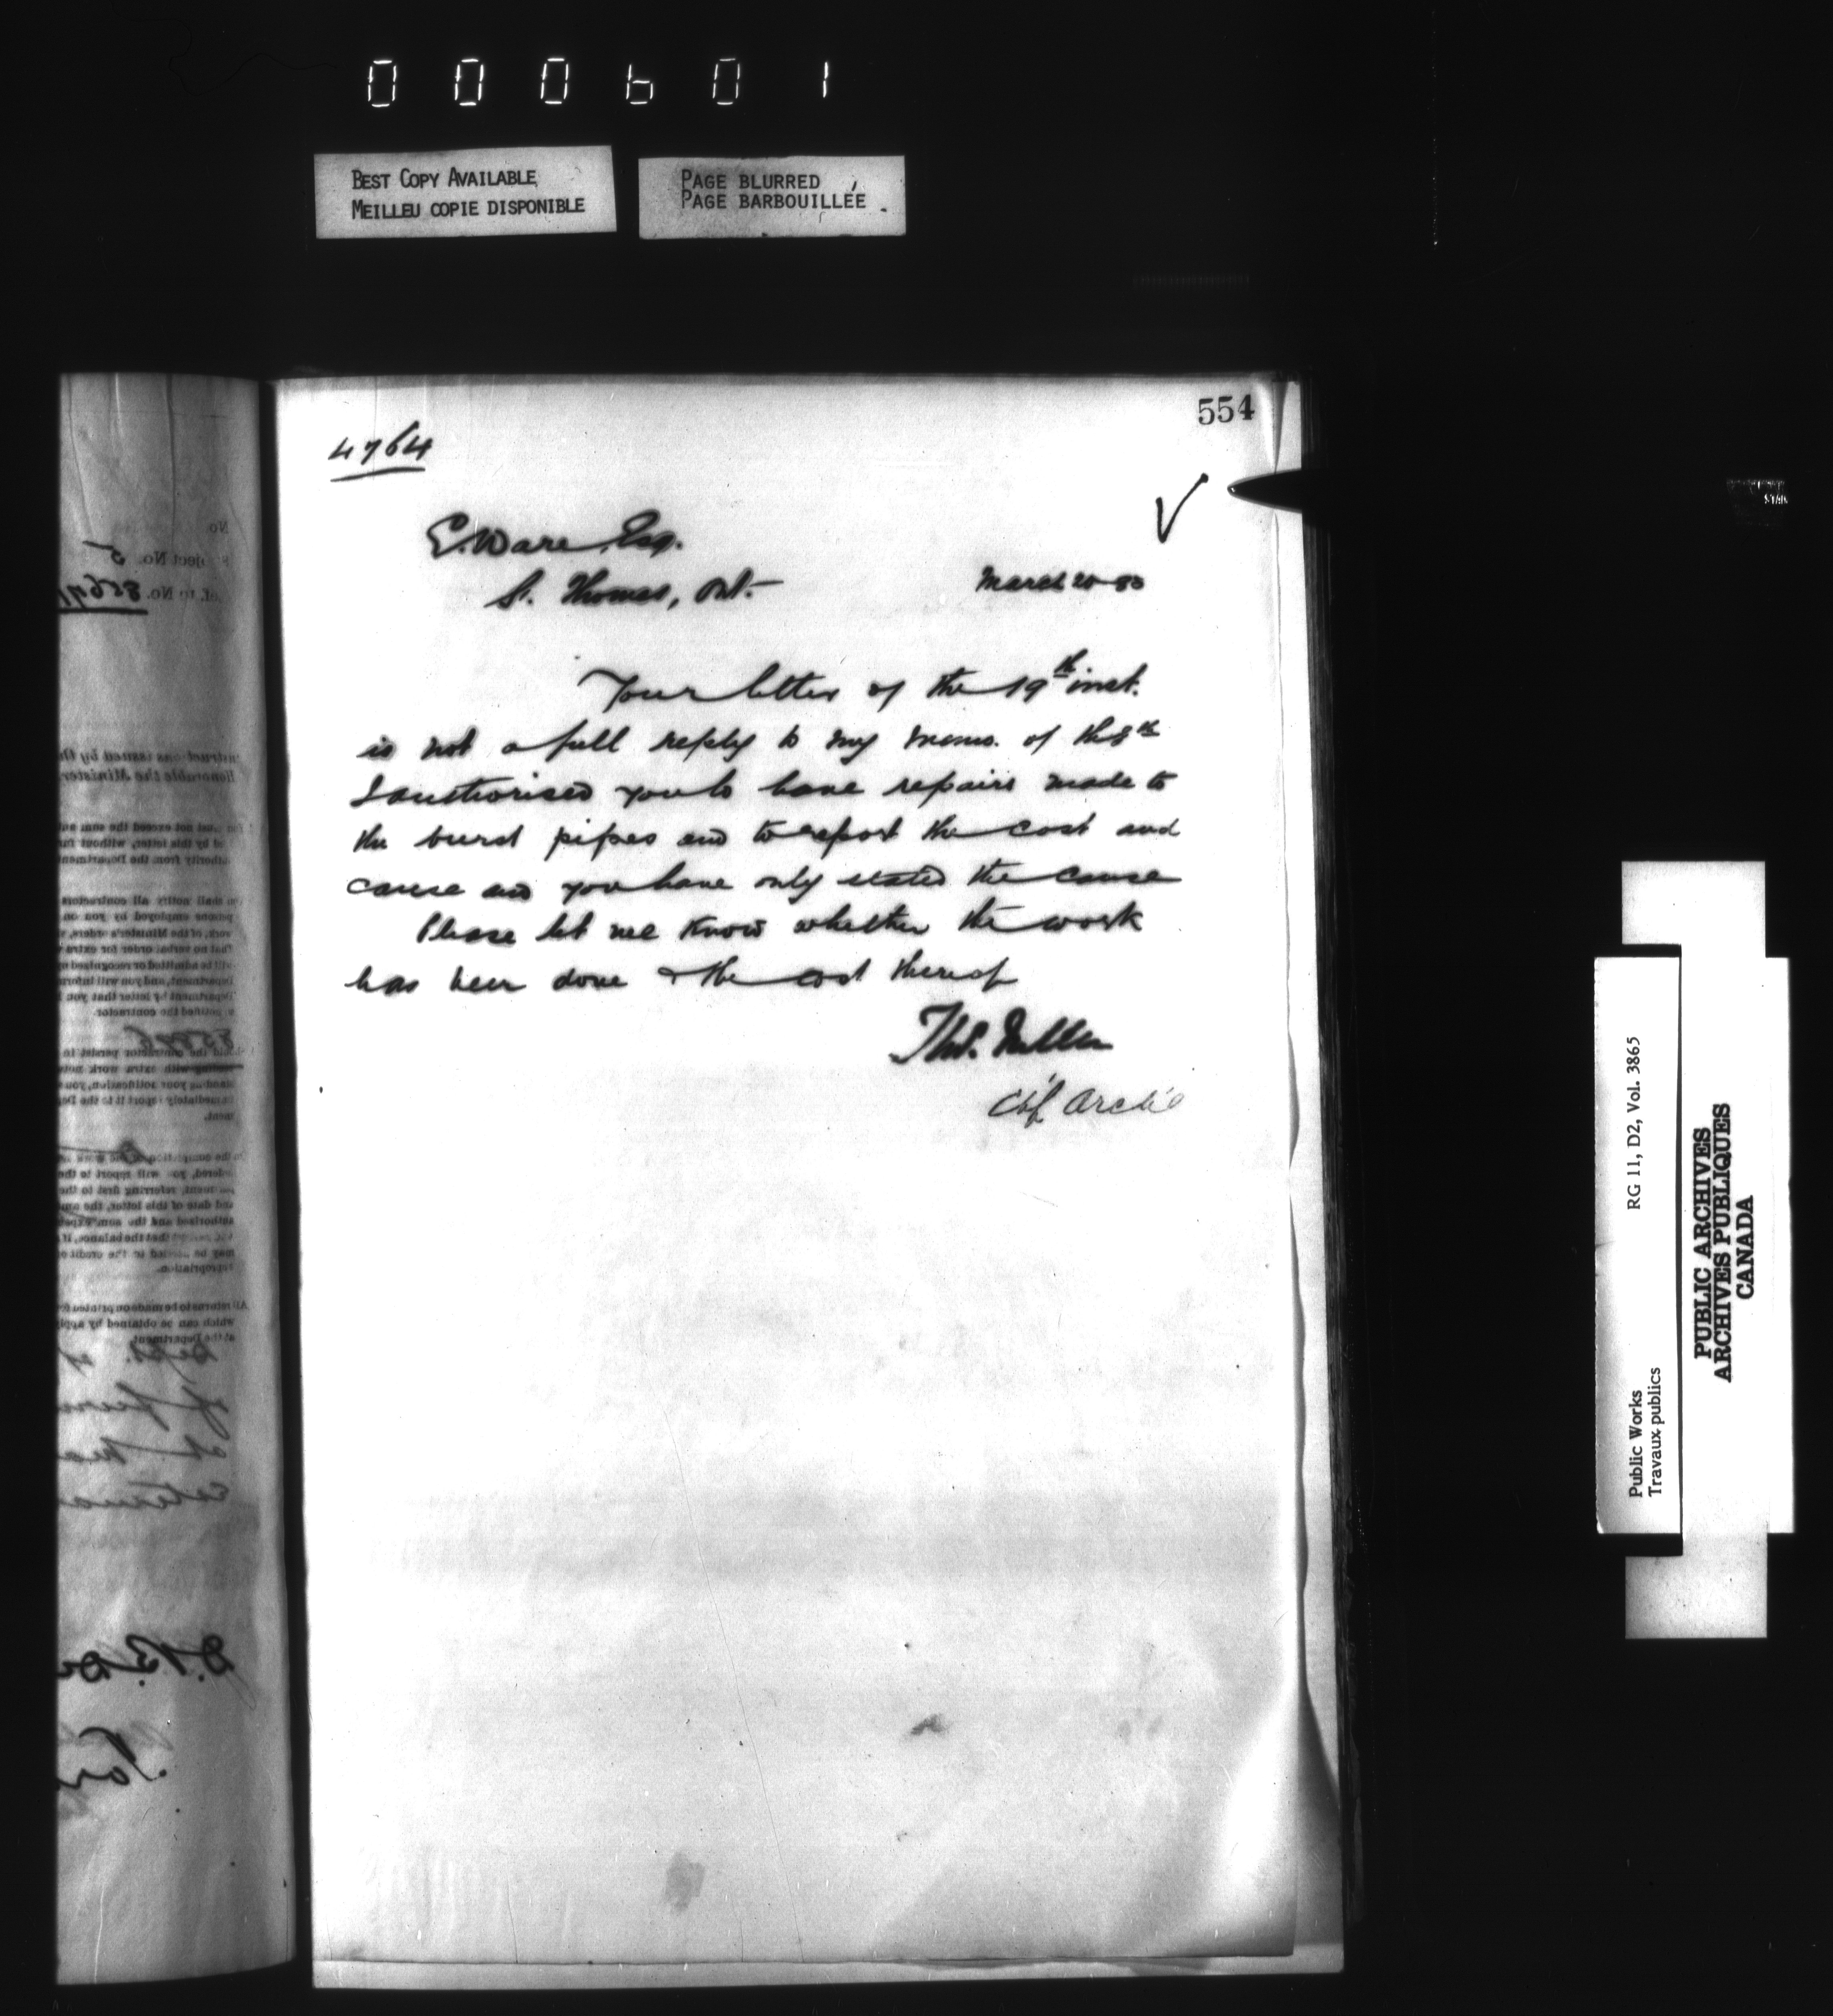 000601
BEST COPY AVAILABLE
MEILLEU COPIE DISPONIBLE
PAGE BLURRED
PAGE BARBOUILLÉE
554
4764
E. Ware, Esq.
St. Thomas, Ont.
March 20 83
Your letter of the 19th inst.
is not a full reply to my memo. of th 8th
I authorised you to have repairs made to
the burst pipes and to report the cost and
cause and you have only stated the cause
Please let me know whether the work
has been done & the cost thereof
Thos. Fuller
Chf Archt
No.
Subject No. 5
Ref. to No.
Instructions issued by th
Honorable the Minister
must not exceed the sum
ed by this letter, without fu
authority from the Department
shall notify all contractors
persons employed by you on
work, of the Minister's orders,
that no verbal order for extra
will be admitted or recognised
Department, and you will inform
Department by letter that you
notified the contractor.
the contractor persist in
with extra work not
standing your notification, you
immediately report it to the De
ment.
the completion of the work
ordered, you will report to the
ment, referring first to the
and date of this letter, the
authorised and the sum expe
that the balance, if
may be carried to the credit o
appropriation.
All returns to be made on printed fo
which can be obtained by appl
at the Department.
Dept.
RG 11, D2, Vol. 3865
Public Works
Travaux publics
PUBLIC ARCHIVES
ARCHIVES PUBLIQUES
CANADA